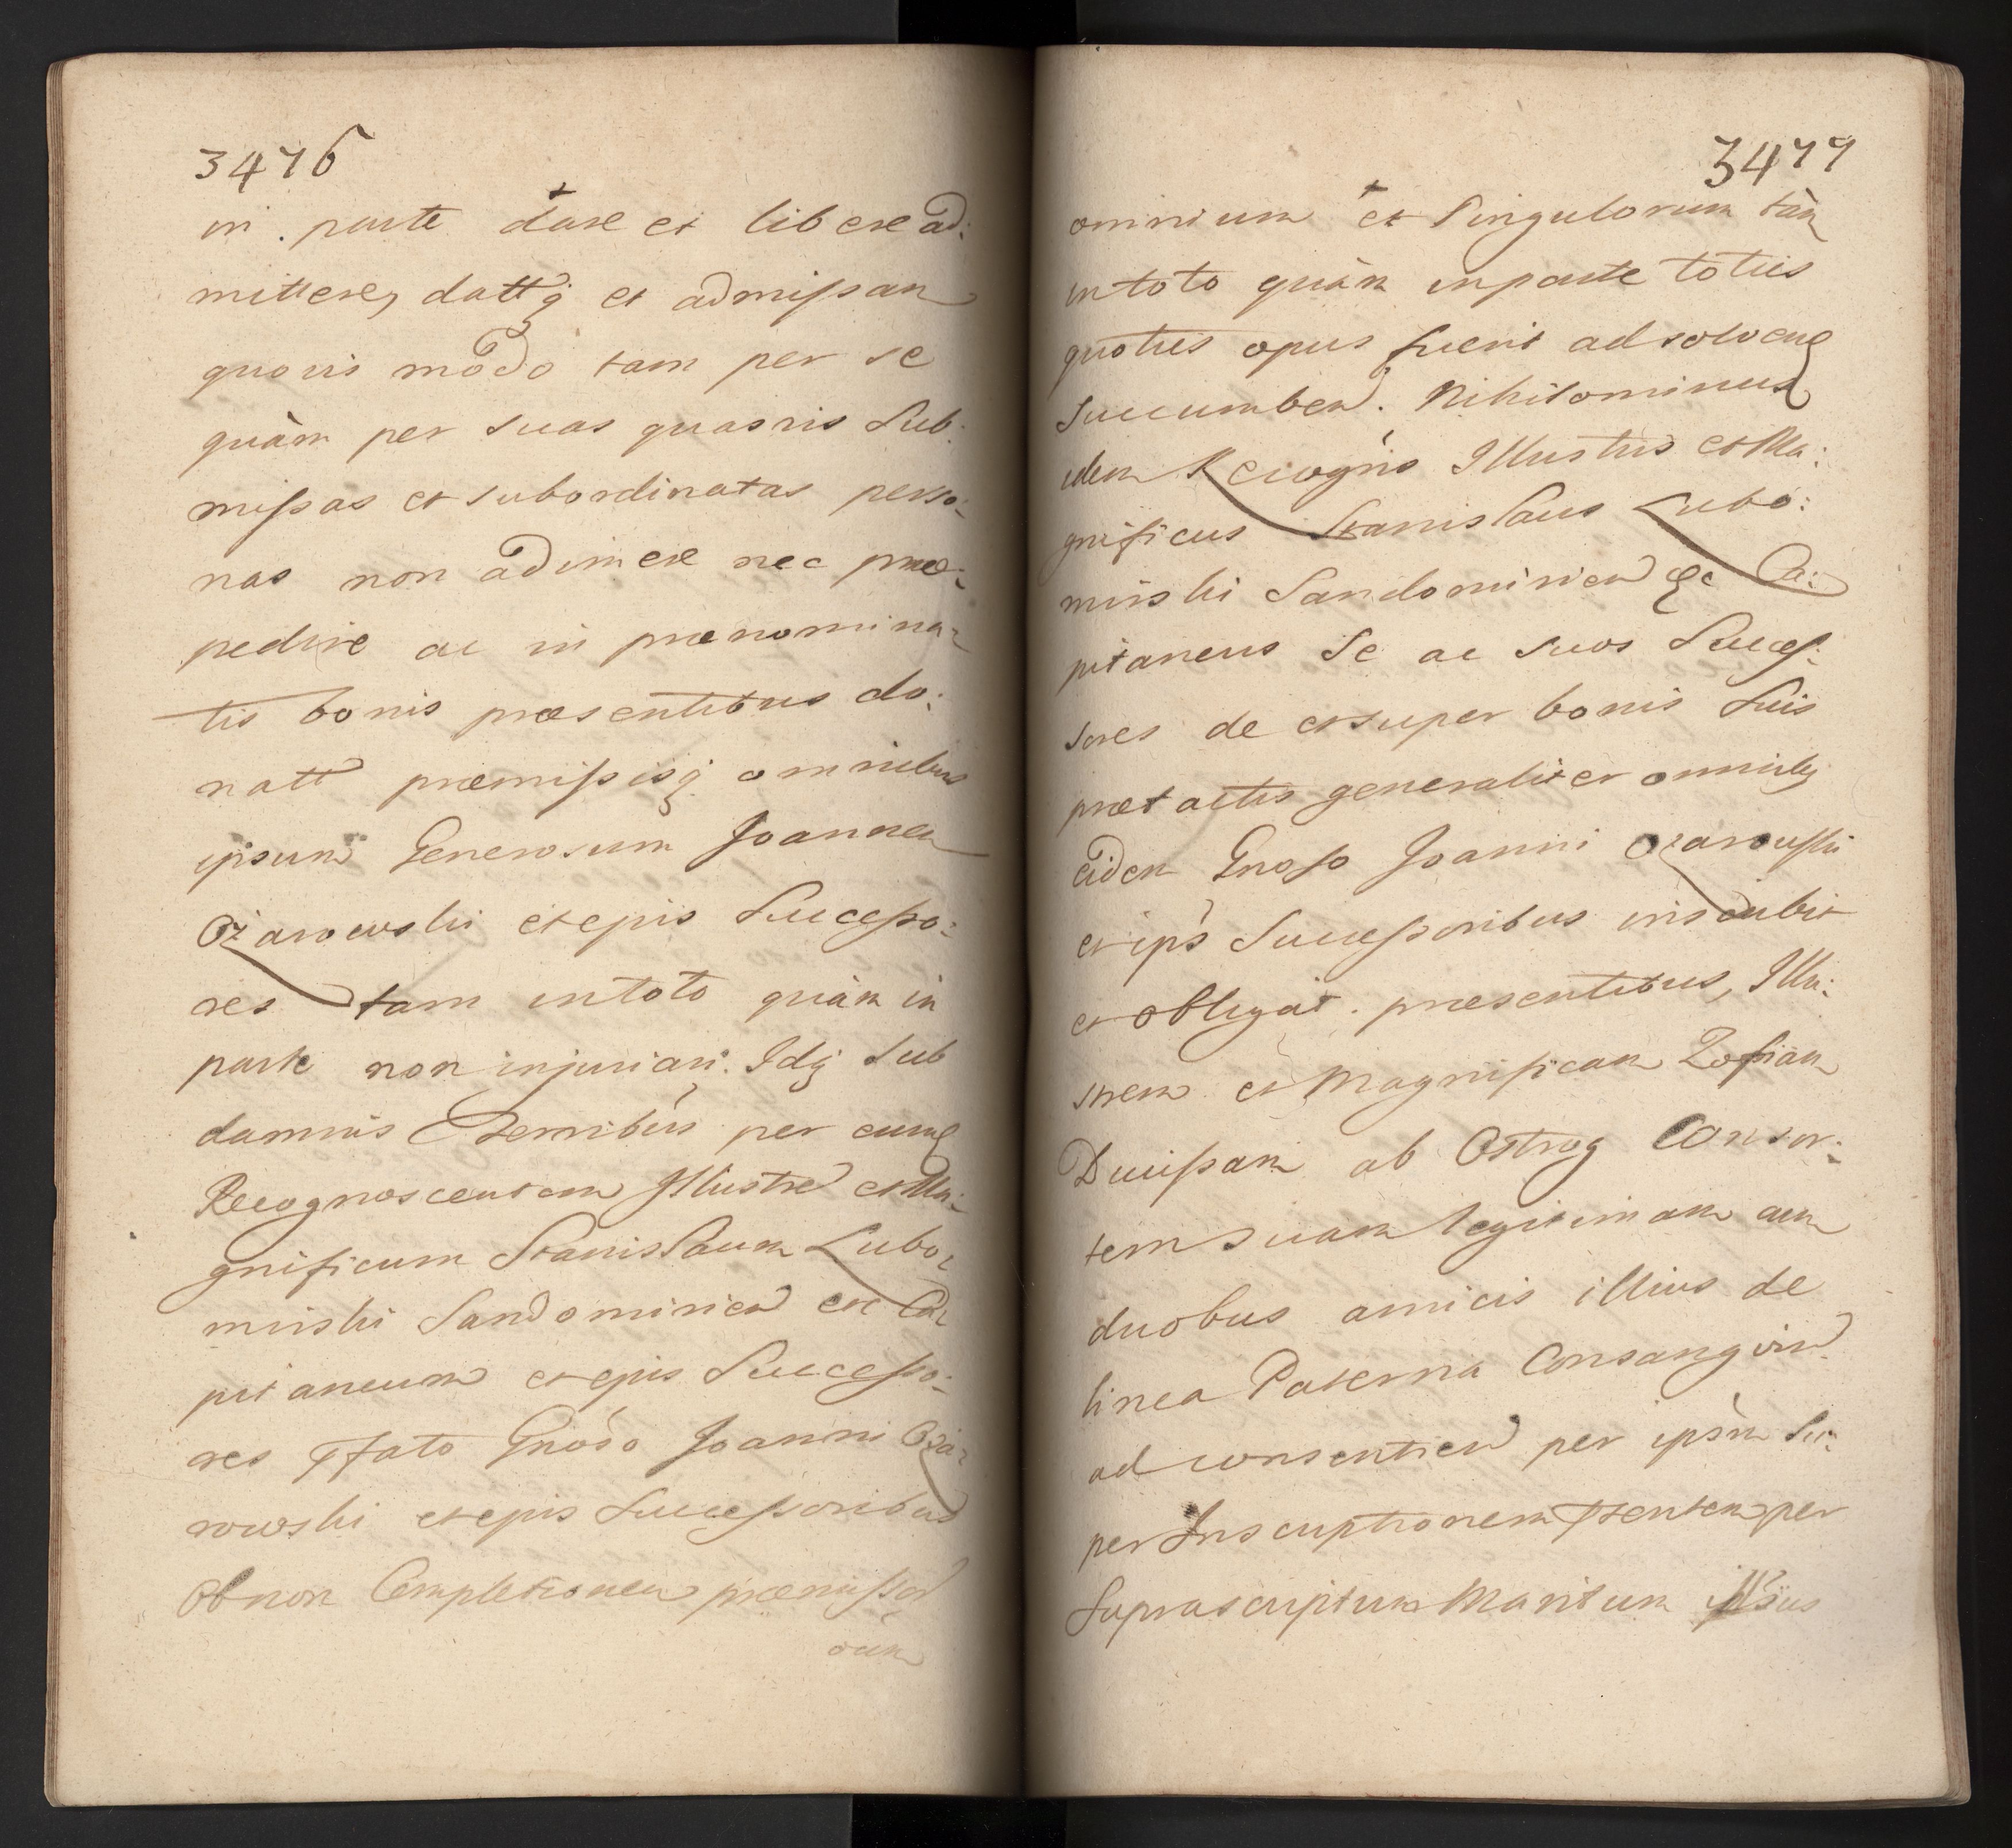 3476
in parte dare et libere ad:
mittere, dattq; et admissam
quovis modo tam per se
quàm per suas quasvis Sub:
missas et subordinatas perso:
nas non adimere nec præ:
pedire ac in prænomina:
tis bonis præsentibus do:
natt præmissisq; omnibus
ipsum Generosum Joannem
Ożarowski et ejus Successo:
res tam in toto quàm in
parte non injuriari. Idq; sub
damnis terribus per eund
Recognoscentem Illustrem et Ma:
gnificum Stanislaum Lubo:
mirski Sandomirien etc Ca:
pitaneum et ejus Successo:
res pfato Gnoso Joanni Oża:
rowski et ejus Successoribus
Ob non Completionem præmissor
oum
3477
omnium et Singulorum tàm
in toto quàm in parte toties
quoties opus fuerit ad solvend
Succumben. Nihilominus
idem Recogns Illustris et Ma:
gnificus Stanislaus Lubo:
mirski Sandomirien &c Ca:
pitaneus Se ac suos Succes:
sores de et super bonis Suis
prætactis generaliter omnibq
eidem Gnoso Joanni Ozarowski
et ips Successoribus inscribit
et obligat. præsentibus, Illu:
strem et Magnificam Zofiam
Ducissam ab Ostrog Consor:
tem suam legitimam cum
duobus amicis illius de
linea Paterna Consangvin
ad consentien per ipsm Su:
per Inscriptionem pſentem per
Suprascriptum Maritum ipsius